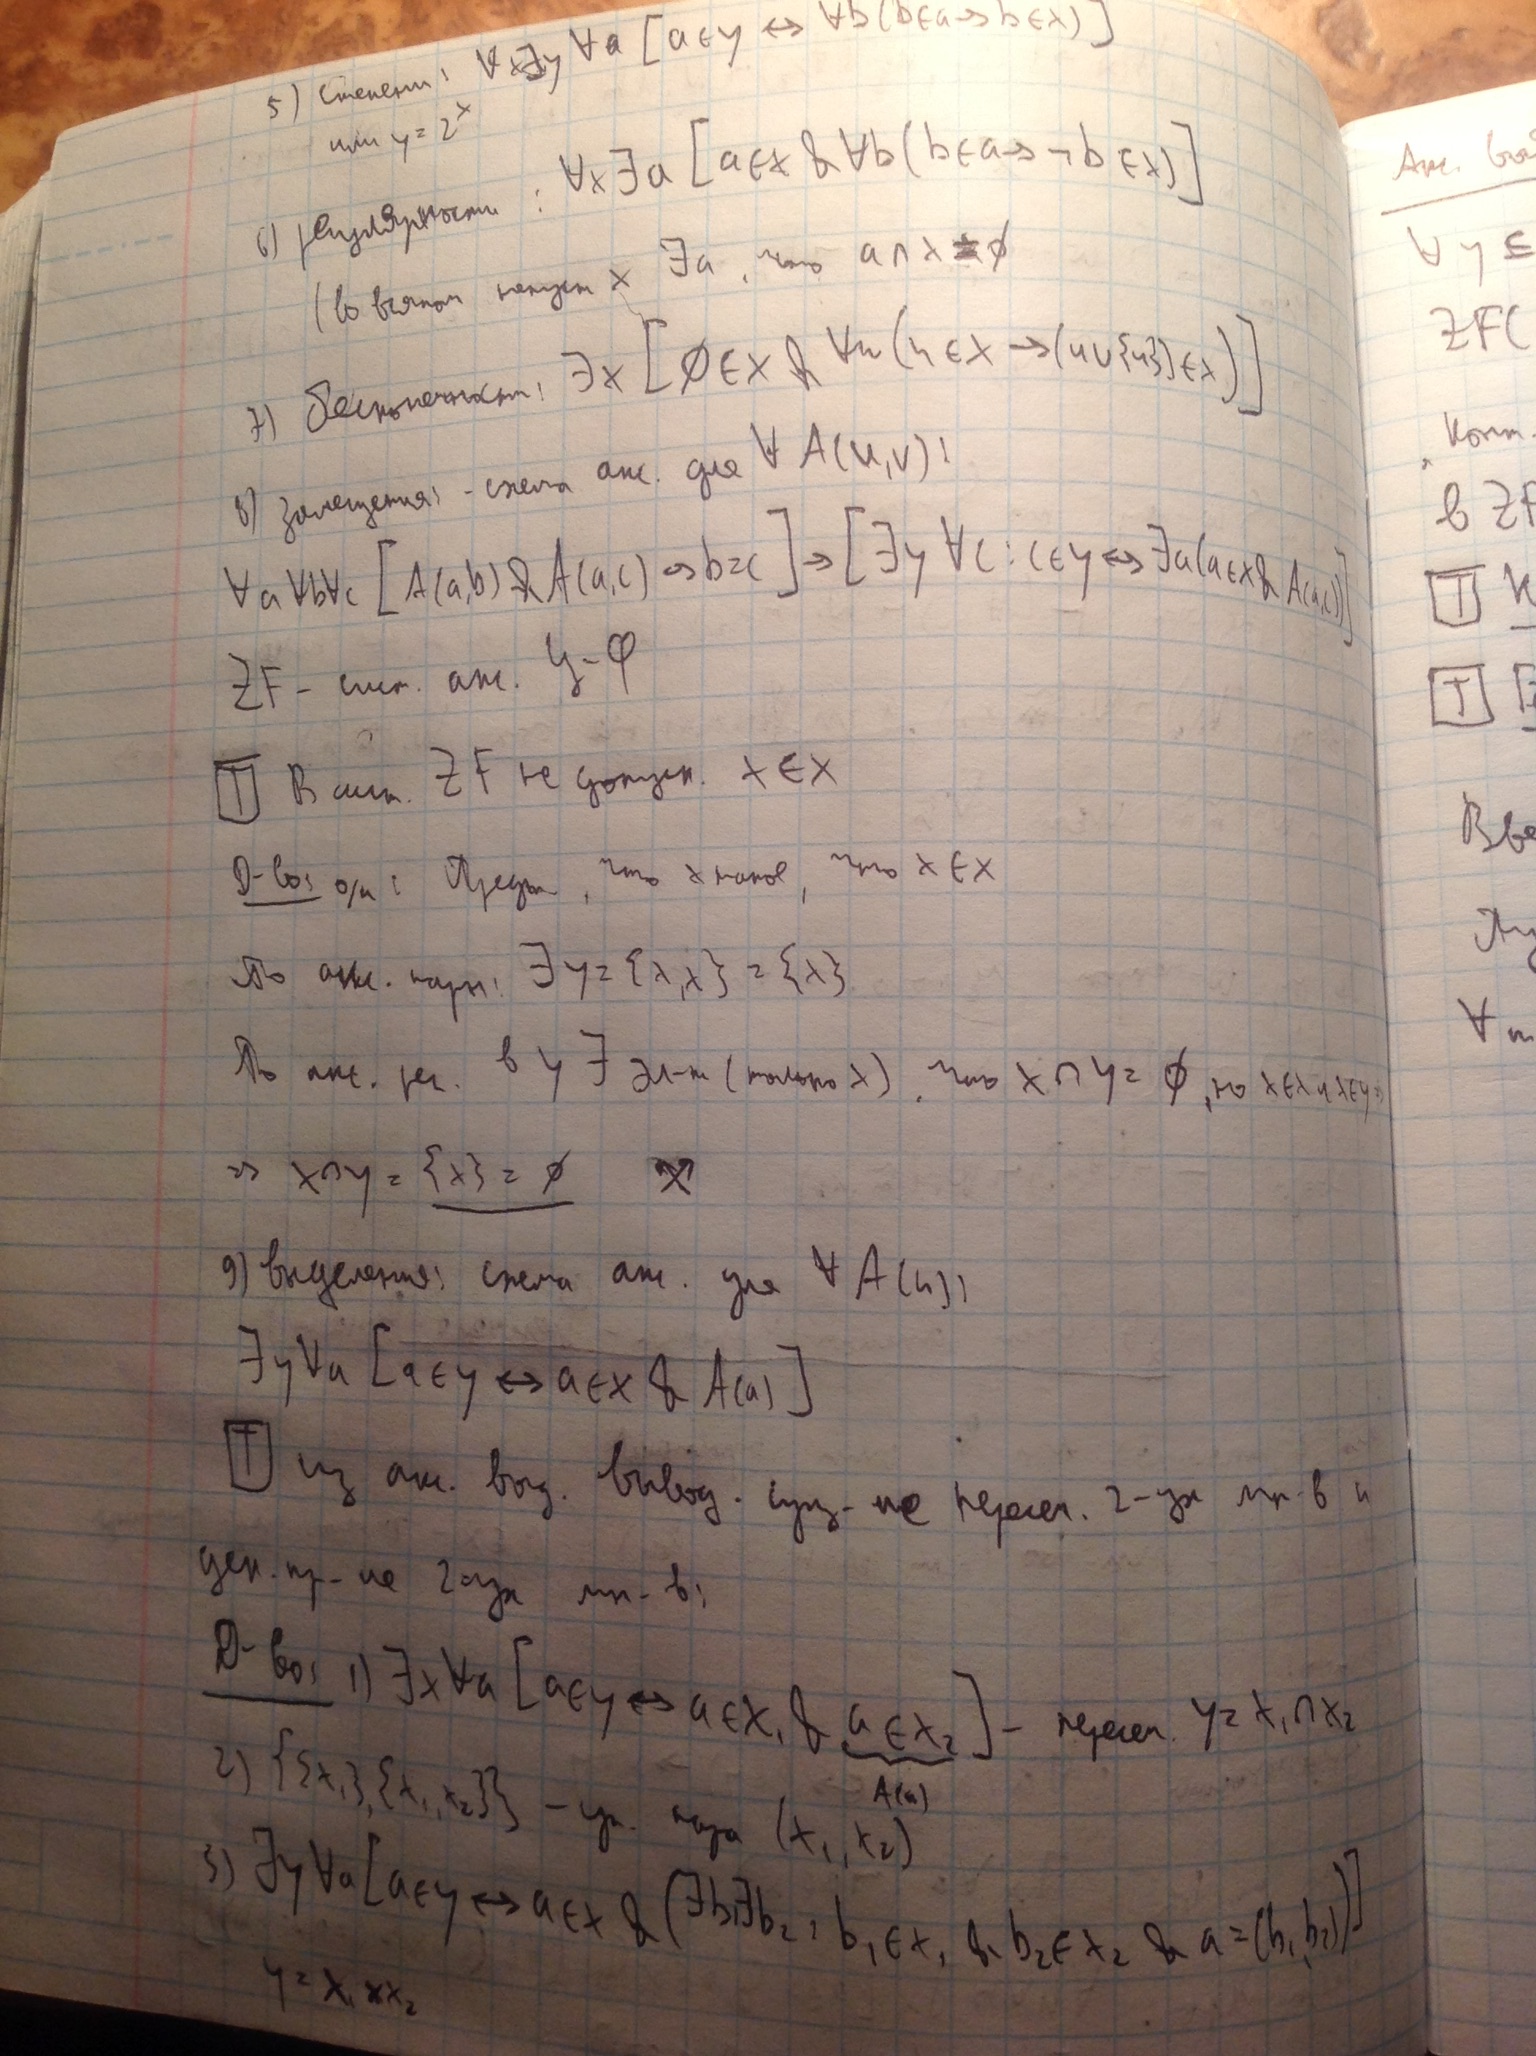 5) степени: ∀x∃y ∀a [a∈y ↔ ∀b(b∈a→b∈x)]
или y=2^x
6) регулярности: ∀x∃a [a∈x & ∀b(b∈a→¬b∈x)]
(во всяком непуст x ∃a, что a∩x=∅
7) бесконечности: ∃x [∅∈x & ∀u(u∈x→(u∪{u})∈x)]
8) замещения: - схема акс. для ∀ A(u,v):
∀a∀b∀c [A(a,b)&A(a,c)→b=c]→[∃y ∀c: c∈y↔∃a(a∈x&A(a,c))]
ZF - сист. акс. Ц-Ф
[T] В сист. ZF не допуск. x∈x
Д-во: о/п: Предп, что x такое, что x∈x
По акс. пары: ∃y={x,x}={x}
По акс. рег. в y ∃ эл-т (только x), что x∩y=∅, но x∈x и x∈y⇒
⇒ x∩y={x}=∅
9) выделения: схема акс. для ∀ A(u):
∃y∀a [a∈y↔a∈x & A(a)]
[T] из акс. выд. вывод. сущ-ие пересеч. 2-ух мн-в и
дек. пр-ие 2-ух мн-в:
Д-во: 1) ∃x∀a [a∈y↔a∈x₁ & a∈x₂] - пересеч. y=x₁∩x₂
A(a)
2) {{x₁},{x₁,x₂}} - уп. пара (x₁,x₂)
3) ∃y∀a[a∈y↔a∈x & (∃b₁∃b₂: b₁∈x₁ & b₂∈x₂ & a=(b₁,b₂))]
y=x₁×x₂
Акс.
∀ y ⊆
ZFC
Конт.
в ZF
[T]
[T]
∀